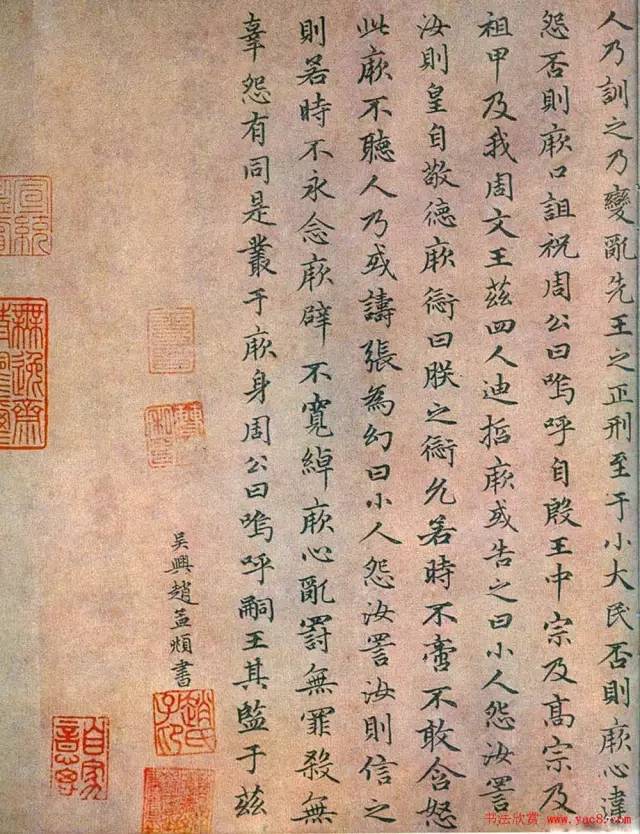 人乃訓之乃變亂先王之正刑至于小大民否則厥心違
怨否則厥口詛祝周公曰嗚呼自殷王中宗及高宗及
祖甲及我周文王茲四人迪哲厥或告之曰小人怨汝詈
汝則皇自敬德厥愆曰朕之愆允若時不啻不敢含怒
此厥不聽人乃或譸張為幻曰小人怨汝詈汝則信之
則若時不永念厥辟不寬綽厥心亂罰無罪殺無
辜怨有同是叢于厥身周公曰嗚呼嗣王其監于茲
吳興趙孟頫書
趙氏子印
無逸齋
宣統
书法欣赏 www.yac8.com